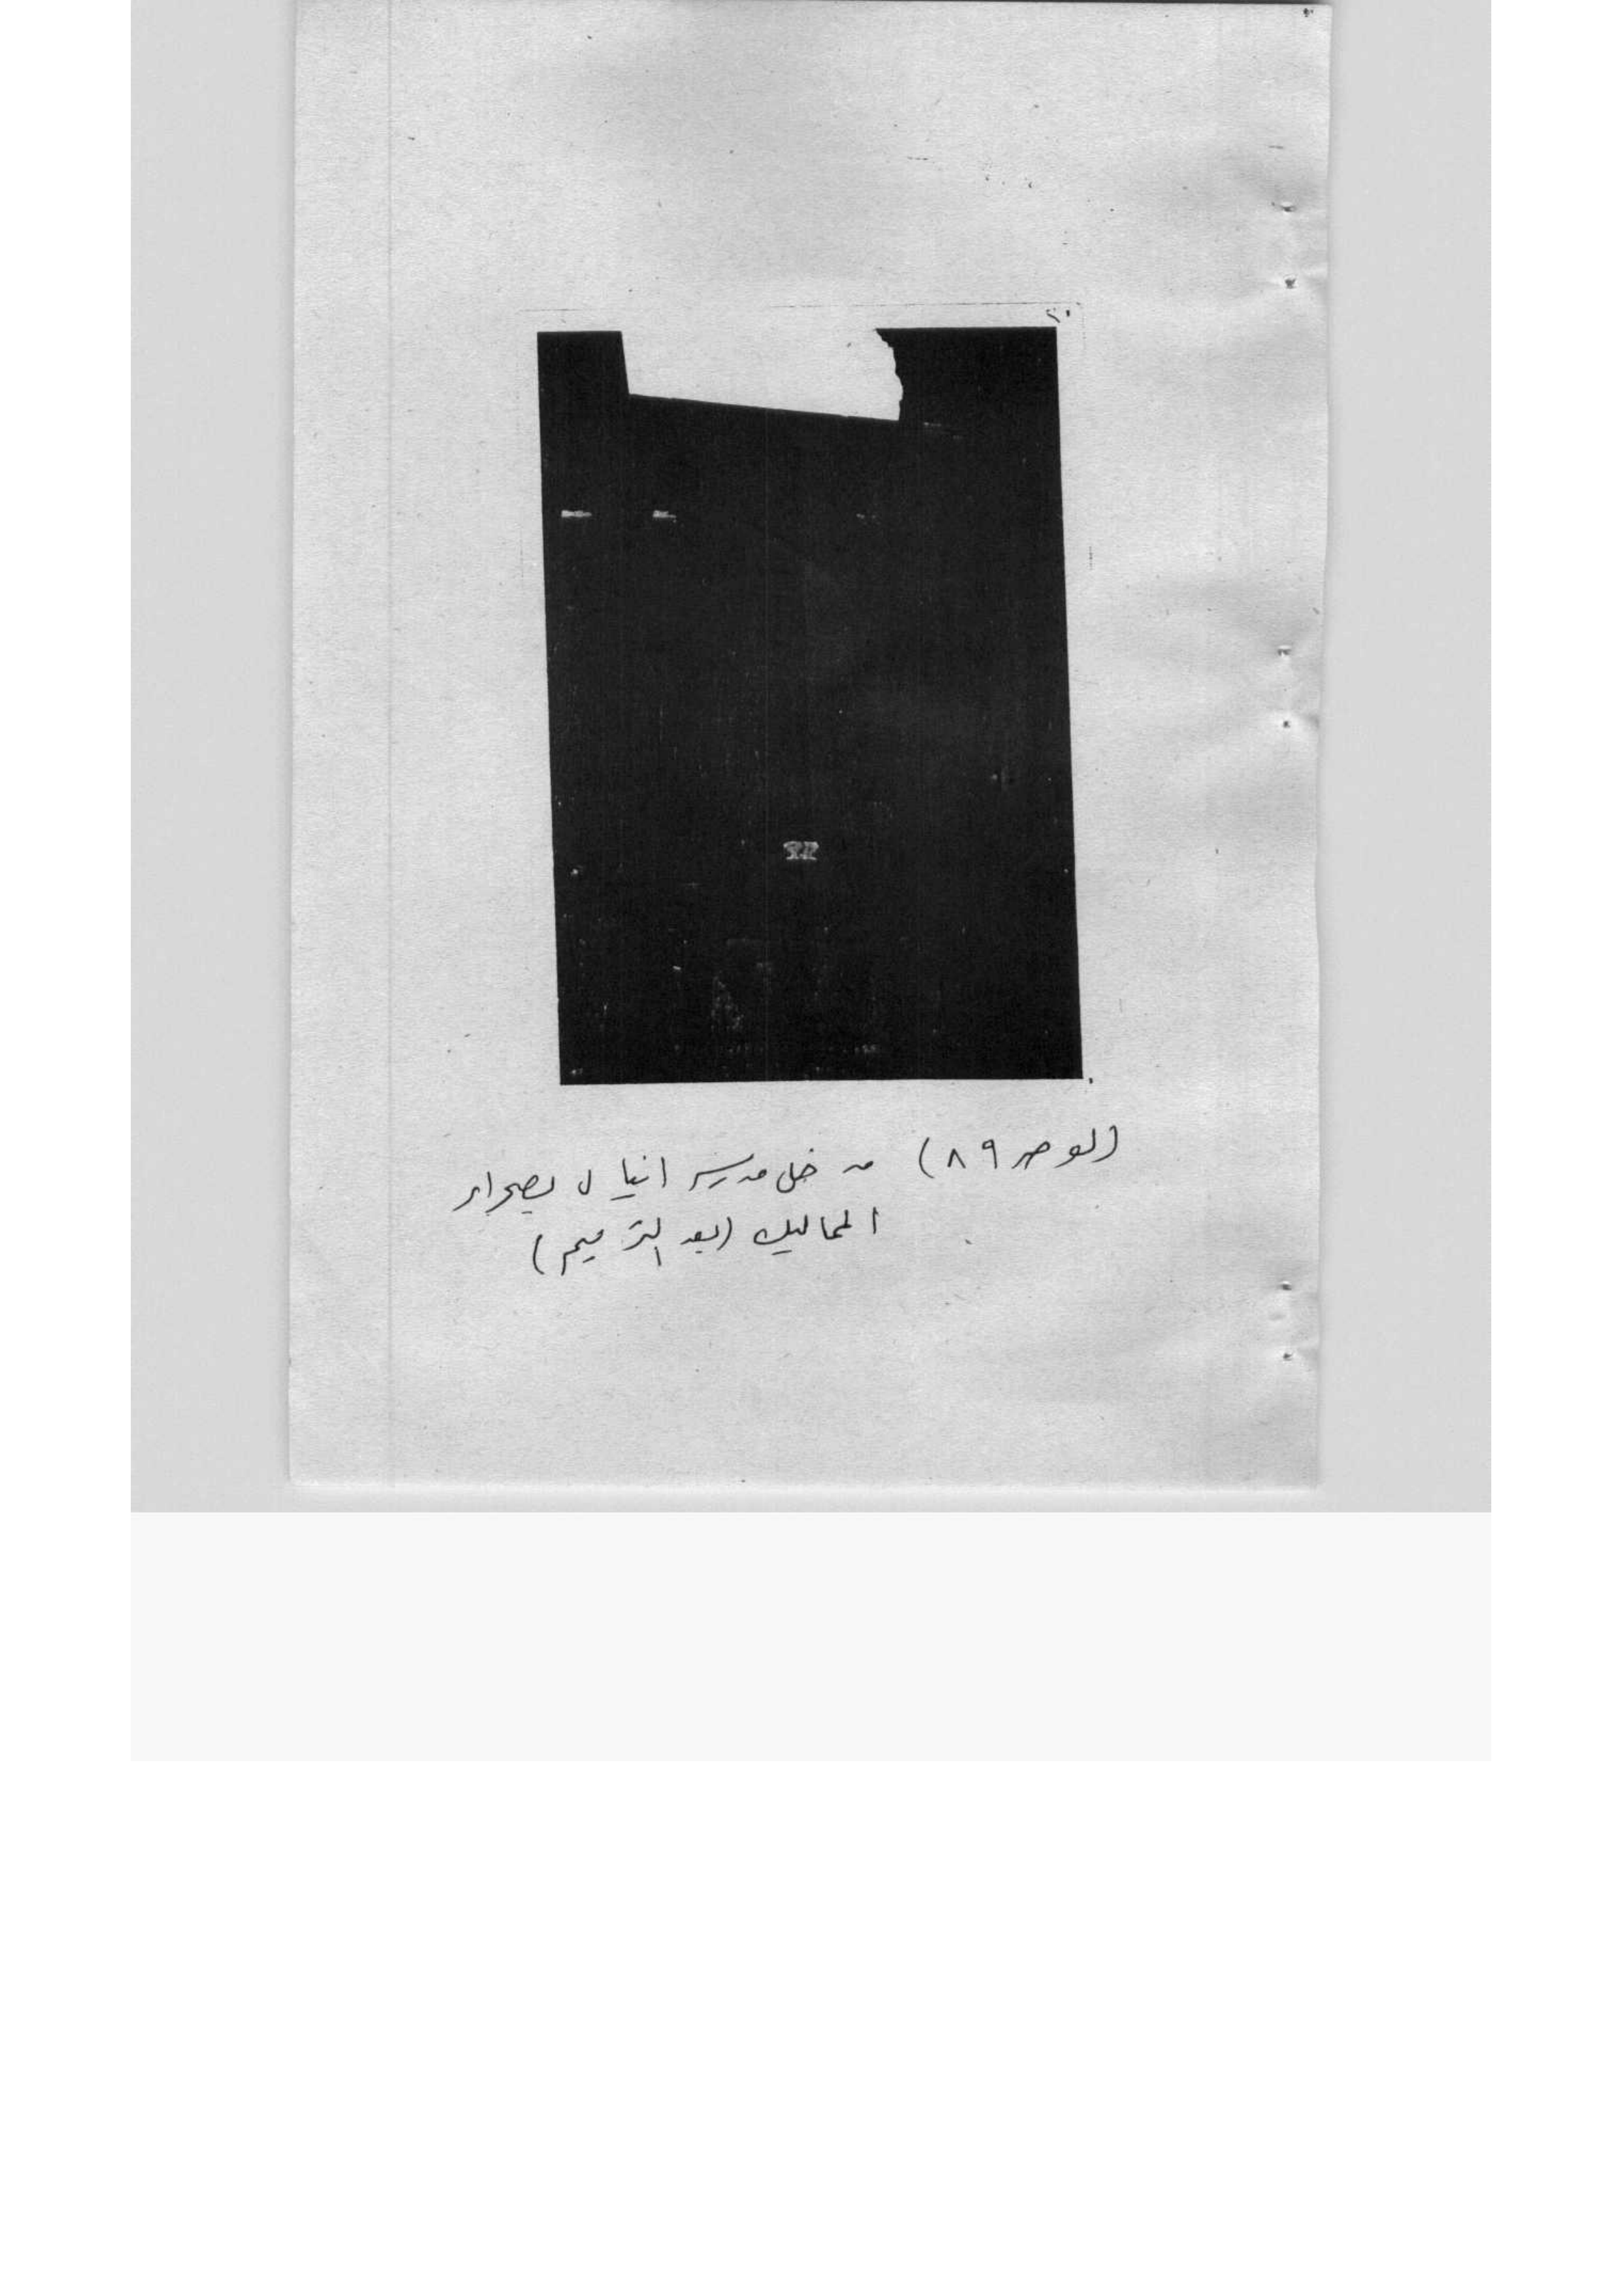 (لوحه ٨٩) مدخل مدرسة اينال بصحراء
المماليك (بعد الترميم)